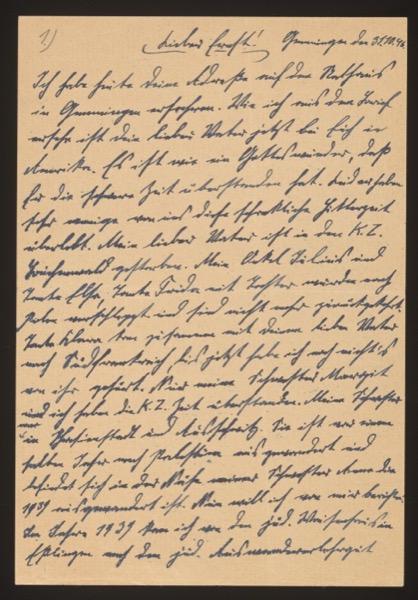 1)
Lieber Ernst! Gemmingen den 31.10.46
Ich habe heute deine Adresse auf dem Rathaus
in Gemmingen erfahren. Wie ich aus dem Brief
ersehe ist dein lieber Vater jetzt bei Euch in
Amerika. Es ist wie ein Gotteswunder, daß
Er die schwere Zeit überstanden hat. Leider haben
sehr wenige von uns diese schreckliche Hitlerzeit
überlebt. Mein lieber Vater ist in dem K.Z.
Buchenwald gestorben. Mein Onkel Julius und
Tante Elsa, Tante Frida mit Tochter wurden nach
Polen verschleppt und sind nicht mehr zurückgekehrt.
Tante Klara kam zusammen mit deinem lieben Vater
nach Südfrankreich, bis jetzt habe ich noch nichts
von ihr gehört. Nur meine Schwester Margit
und ich haben die K.Z. Zeit überstanden. Meine Schwester
war in Theresienstadt und Auschwitz. Sie ist vor einem
halben Jahr nach Palästina ausgewandert und
befindet sich in der Nähe meiner Schwester die
1939 ausgewandert ist. Nun will ich von mir berichten.
Im Jahre 1939 kam ich von dem jüd. Waisenhaus in
Esslingen nach dem jüd. Auswandererlehrgut